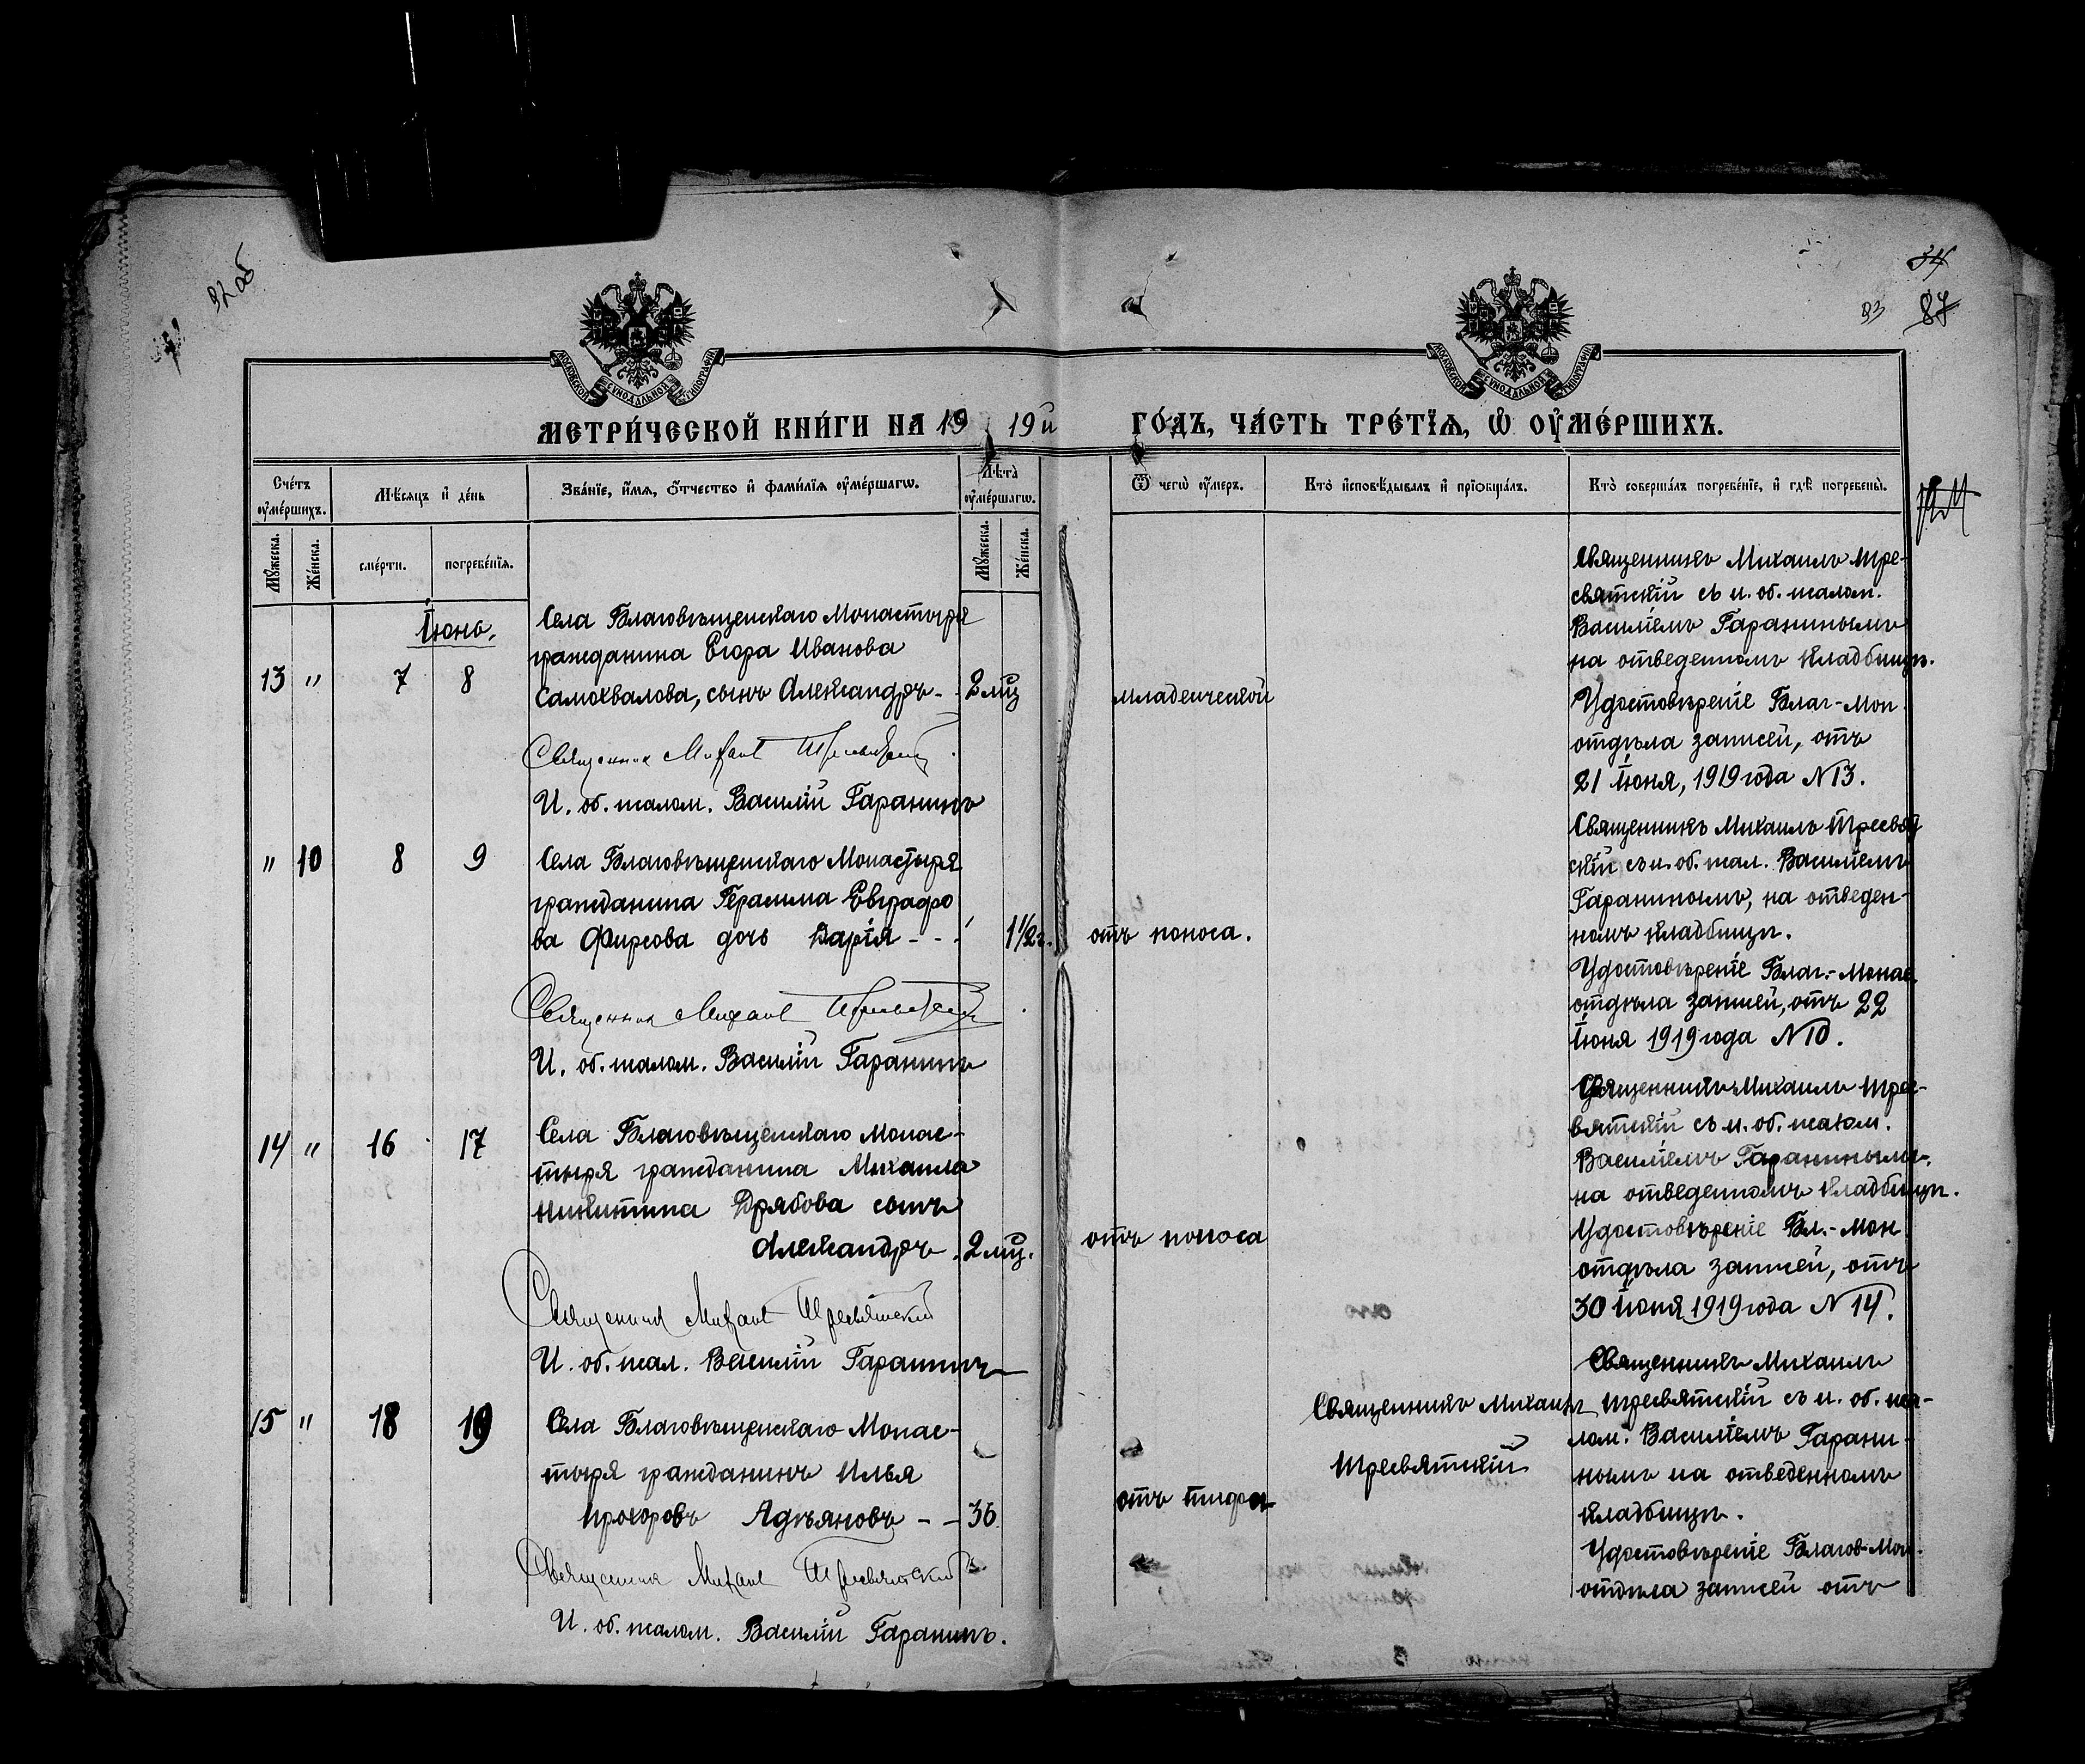 92 об
34
93 87
МОСКОВСКОЙ СУНОДАЛЬНОЙ ТИПОГРАФІИ
МОСКОВСКОЙ СУНОДАЛЬНОЙ ТИПОГРАФІИ
МЕТРИ́ЧЕСКОЙ КНИ́ГИ НА 19 19й ГО́ДЪ, ЧА́СТЬ ТРЕ́ТЇѦ, Ѡ҆ ОУ҆МЕ́РШИХЪ.
Сче́тъ оу҆ме́ршихъ.
Мѣ́сѧцъ и҆ де́нь
Зва́нїе, и҆́мѧ, ѻ҆́тчество и҆ фами́лїѧ оу҆ме́ршагѡ.
Лѣ́та оу҆ме́ршагѡ.
Ѿ чегѡ̀ оу҆́меръ.
Кто̀ и҆сповѣ́дывалъ и҆ прїѻбща́лъ.
Кто̀ соверша́лъ погребе́нїе, и҆ гдѣ̀ погребены̀.
Мꙋ́жеска.
Же́нска.
сме́рти.
погребе́нїѧ.
Мꙋ́жеска.
Же́нска.
Іюнь.
13 " 7 8
Села Благовѣщенскаго Монастыря
гражданина Егора Иванова
Самохвалова, сынъ Александръ - 2 мц
Священник Михаил Тресвятский
И. об. псалом. Василій Гаранинъ
младенческой
Священникъ Михаилъ Тре-
святскій съ и. об. псалом.
Василіемъ Гаранинымъ
на отведенномъ кладбищѣ.
Удостовѣреніе Благ-Мон.
отдѣла записей, отъ
21 Іюня, 1919 года N 13.
" 10 8 9
Села Благовѣщенскаго Монастыря
гражданина Герасима Евграфо
ва Фирсова дочь Дарія - - . 1 1/2 г.
Священник Михаил Тресвятский
И. об. псалом. Василій Гаранинъ
отъ поноса.
Священникъ Михаилъ Тресвят
скій съ и. об. псал. Василіемъ
Гаранинымъ, на отведен-
номъ кладбищѣ.
Удостовѣреніе Благ.-Монас.
отдѣла записей, отъ 22
Іюня 1919 года N 10.
14 " 16 17
Села Благовѣщенскаго Монас-
тыря гражданина Михаила
Никитина Дрябова сынъ
Александръ. 2 мц.
Священник Михаил Тресвятский
И. об. псал. Василій Гаранинъ
отъ поноса
Священникъ Михаилъ Трес-
вятскій съ и. об. псалом.
Василіемъ Гаранинымъ.
на отведенномъ кладбищѣ.
Удостовѣреніе Бл.-Мон.
отдѣла записей, отъ
30 Іюня 1919 года N 14.
15 " 18 19
Села Благовѣщенскаго Монас-
тыря гражданинъ Илья
Прохоровъ Адѣяновъ - - 36
Священник Михаил Тресвятский
И. об. псалом. Василій Гаранинъ.
отъ тифа
Священникъ Михаилъ
Тресвятскій
Священникъ Михаилъ
Тресвятскій съ и. об. пса-
лом. Василіемъ Гарани-
нымъ на отведенномъ
кладбищѣ.
Удостовѣреніе Благов-Мон.
отдѣла записей отъ